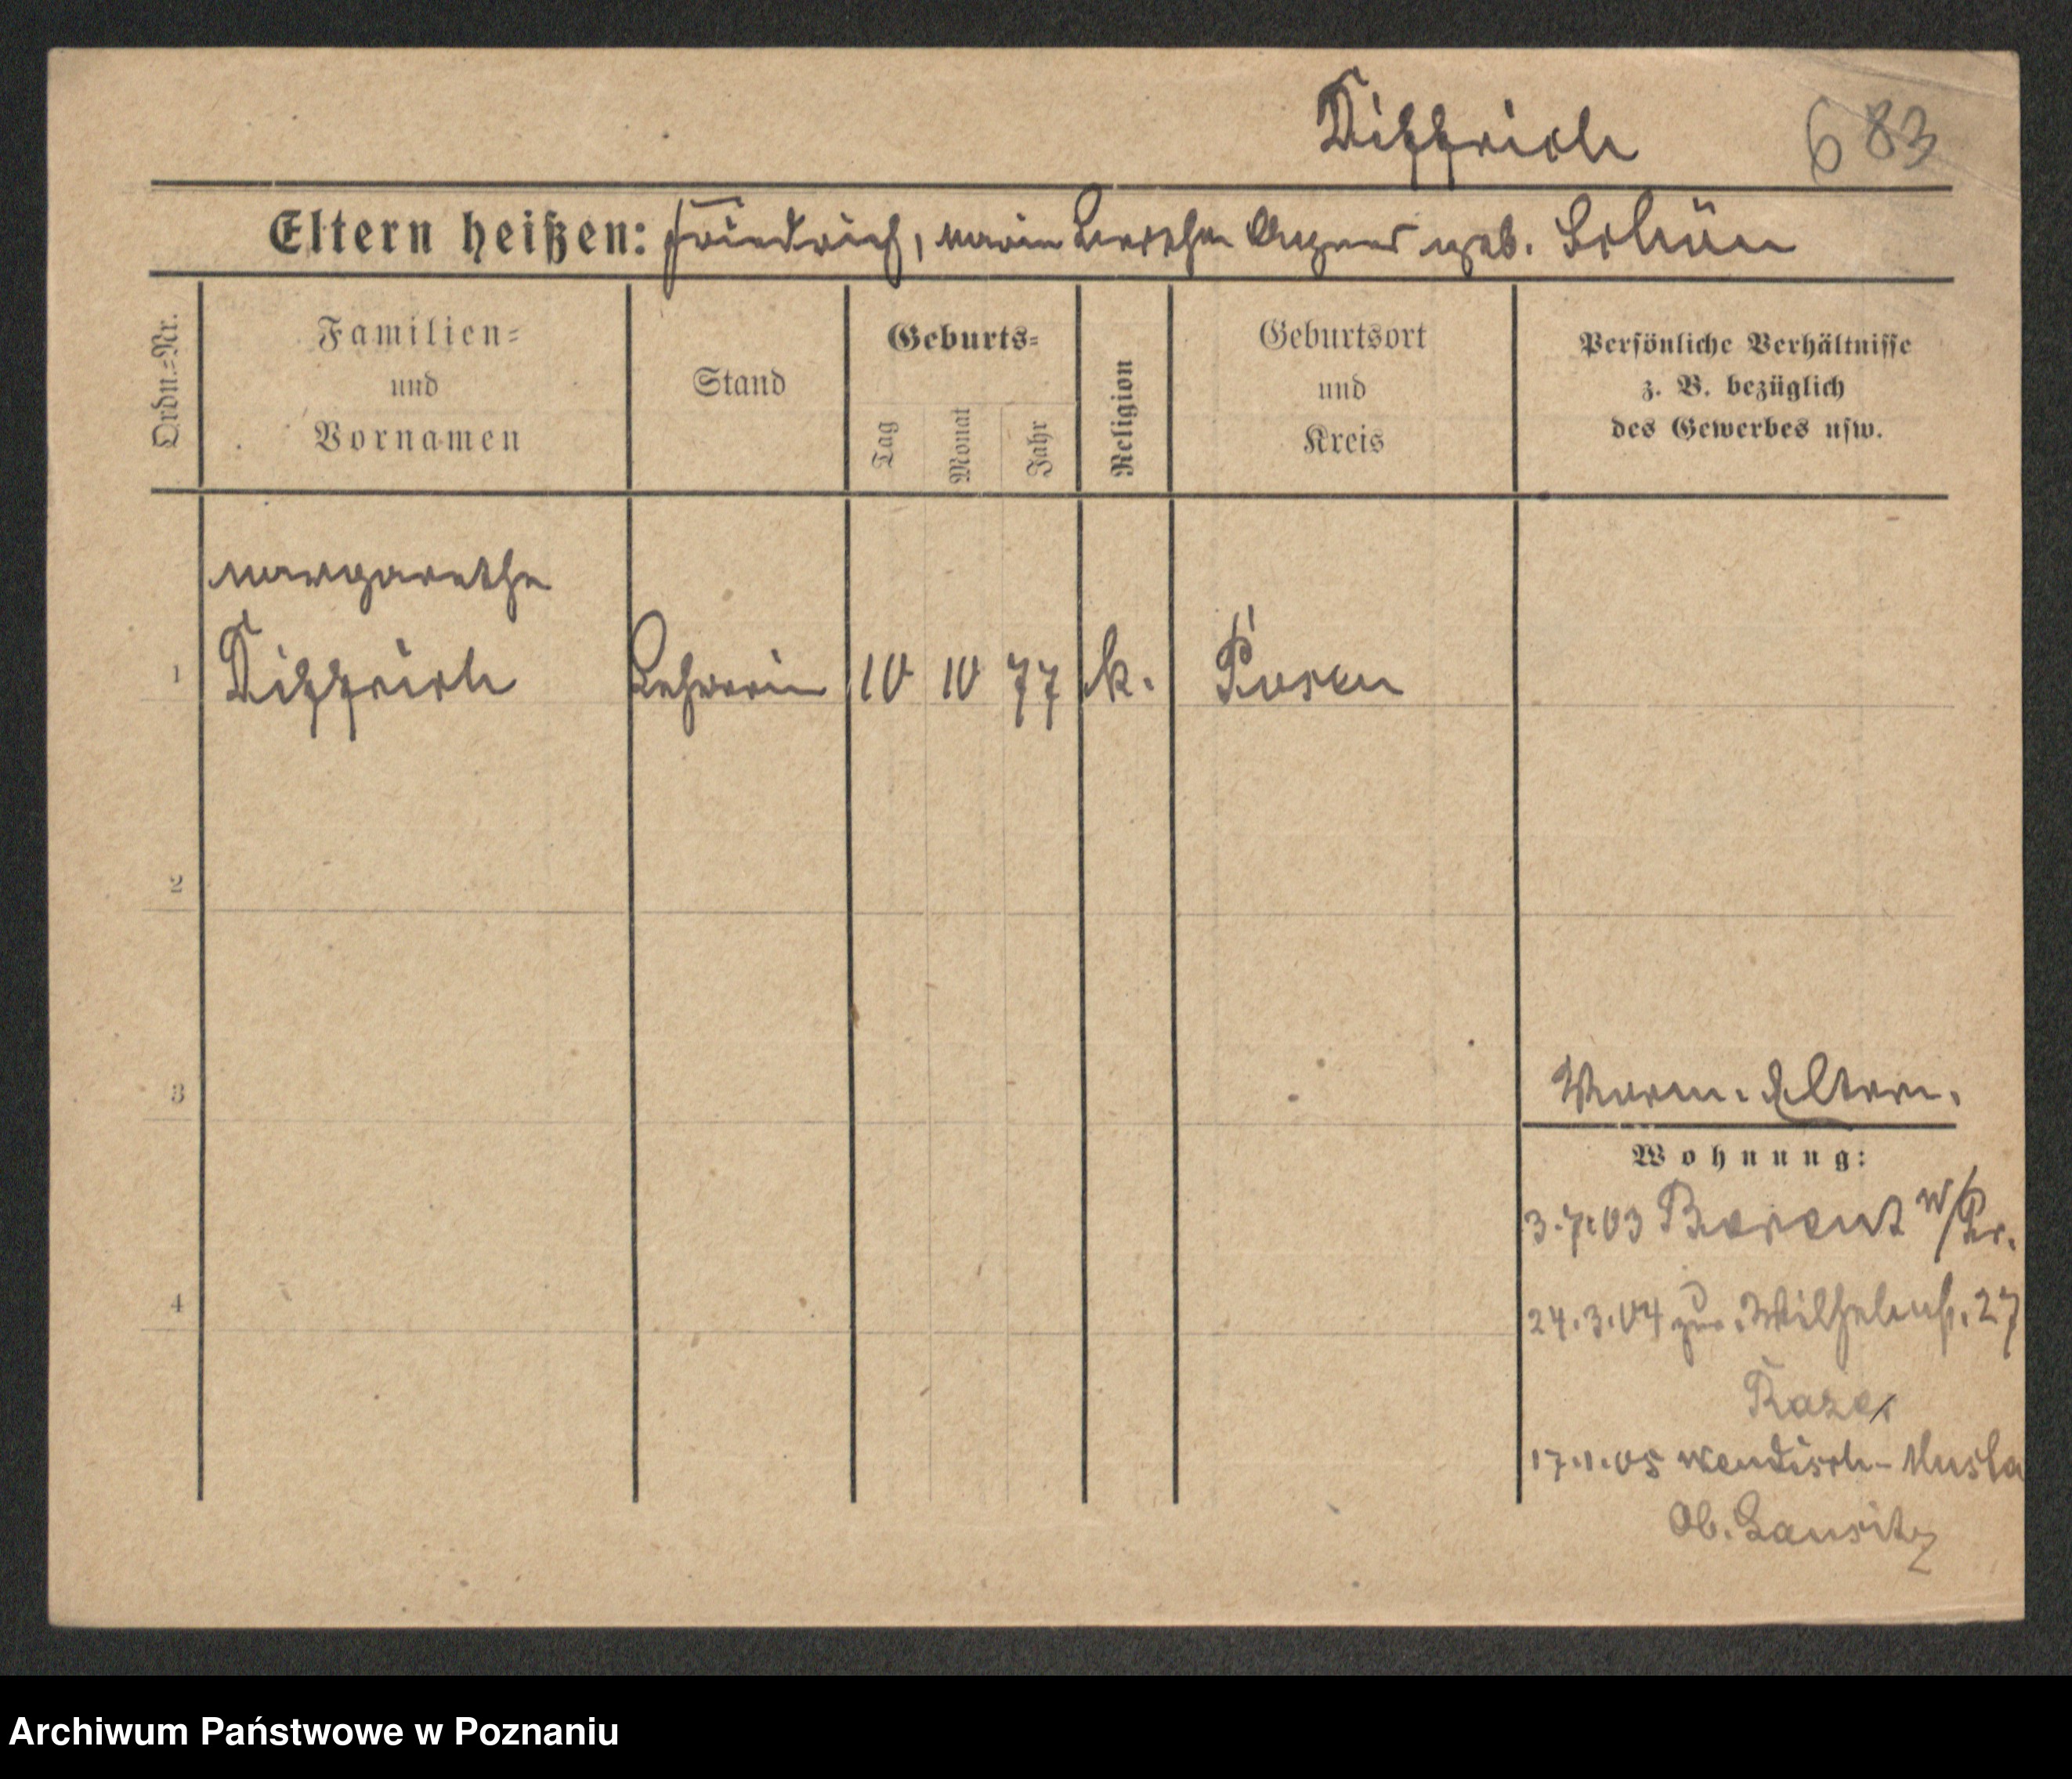 Dittrich 683
Eltern heißen: Friedrich, Maria Agnes geb. Schön
Ordn.=Nr.
Familien=
und
Vornamen
Stand
Geburts=
Tag
Monat
Jahr
Religion
Geburtsort
und
Kreis
Persönliche Verhältnisse
z. B. bezüglich
des Gewerbes usw.
Margarethe
1 Dittrich Lehrerin 10 10 77 k. Posen
2
3
Eltern.
Wohnung:
3.7.03 Berent W/Pr.
4
24.3.04 zur. Wilhelmst. 27
17.1.05 Wendisch-Musta
Ob. Lausitz
Archiwum Państwowe w Poznaniu